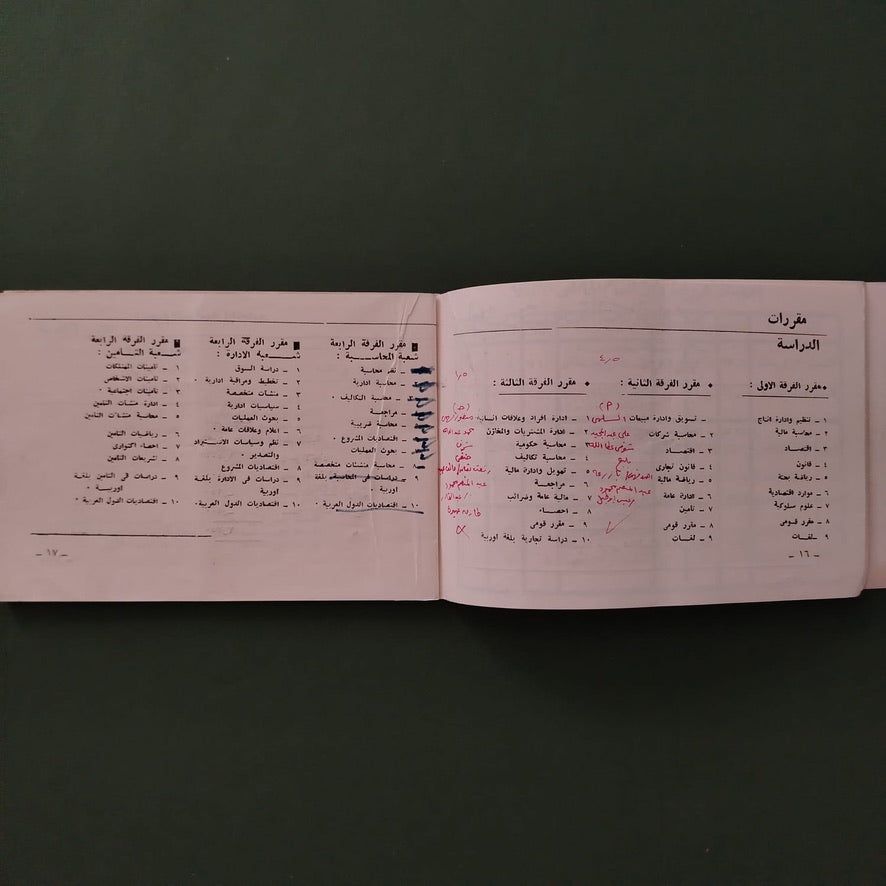 مقررات
الدراسة
مقرر الفرقة الاولى :
١ ـ تنظيم وادارة انتاج
٢ ـ محاسبة مالية
٣ ـ اقتصاد
٤ ـ قانون
٥ ـ رياضة بحتة
٦ ـ موارد اقتصادية
٧ ـ علوم سلوكية
٨ ـ مقرر قومى
٩ ـ لغات
مقرر الفرقة الثانية :
١ ـ تسويق وادارة مبيعات
٢ ـ محاسبة شركات
٣ ـ اقتصاد
٤ ـ قانون تجارى
٥ ـ رياضة مالية
٦ ـ ادارة عامة
٧ ـ تأمين
٨ ـ مقرر قومى
٩ ـ لغات
مقرر الفرقة الثالثة :
١ ـ ادارة افراد وعلاقات انسانية
٢ ـ ادارة المشتريات والمخازن
٣ ـ محاسبة حكومية
٤ ـ محاسبة تكاليف
٥ ـ تمويل وادارة مالية
٦ ـ مراجعة
٧ ـ مالية عامة وضرائب
٨ ـ احصاء
٩ ـ مقرر قومى
١٠ ـ دراسة تجارية بلغة أوربية
ـ ١٦ ـ
مقرر الفرقة الرابعة
شعبة المحاسبة :
ـ نظم محاسبة
ـ محاسبة ادارية
ـ محاسبة التكاليف ٠
ـ مراجعة
ـ محاسبة ضريبية
ـ اقتصاديات المشروع ٠
ـ بحوث العمليات
ـ محاسبة منشات متخصصة
٩ ـ دراسات فى المحاسبة بلغة
اوربية ٠
١٠ ـ اقتصاديات الدول العربية ٠
مقرر الفرقة الرابعة
شعبة الادارة :
١ ـ دراسة السوق
٢ ـ تخطيط ومراقبة ادارية ٠
٣ ـ منشات متخصصة
٤ ـ سياسات ادارية
٥ ـ بحوث العمليات
٦ ـ اعلام وعلاقات عامة ٠
٧ ـ نظم وسياسات الاستيراد
والتصدير ٠
٨ ـ اقتصاديات المشروع
٩ ـ دراسات فى الادارة بلغة
اوربية
١٠ ـ اقتصاديات الدول العربية ٠
مقرر الفرقة الرابعة
شعبة التأمين :
١ ـ تأمينات الممتلكات
٢ ـ تأمينات الاشخاص
٣ ـ تأمينات اجتماعية ٠
٤ ـ ادارة منشات التأمين
٥ ـ محاسبة منشات التأمين
٦ ـ رياضيات التأمين
٧ ـ احصاء اكتوارى
٨ ـ تشريعات التأمين
٩ ـ دراسات فى التأمين بلغة
اوربية ٠
١٠ ـ اقتصاديات الدول العربية ٠
ـ ١٧ ـ